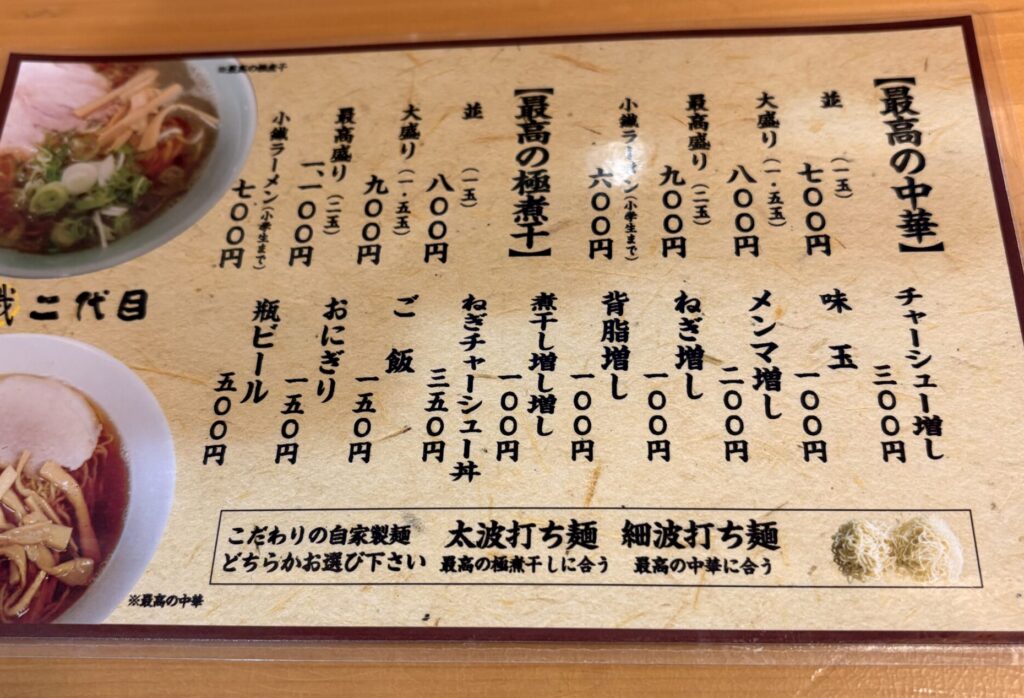 【最高の中華】
並（一玉）
七〇〇円
大盛り（一・五玉）
八〇〇円
最高盛り（二玉）
九〇〇円
小鐵ラーメン（小学生まで）
六〇〇円
【最高の極煮干】
並（一玉）
八〇〇円
大盛り（一・五玉）
九〇〇円
最高盛り（二玉）
一、一〇〇円
小鐵ラーメン（小学生まで）
七〇〇円
チャーシュー増し
三〇〇円
味玉
一〇〇円
メンマ増し
二〇〇円
ねぎ増し
一〇〇円
背脂増し
一〇〇円
煮干し増し増し
一〇〇円
ねぎチャーシュー丼
三五〇円
ご飯
一五〇円
おにぎり
一五〇円
瓶ビール
五〇〇円
※最高の極煮干
二代目
※最高の中華
こだわりの自家製麺
どちらかお選び下さい
太波打ち麺
最高の極煮干しに合う
細波打ち麺
最高の中華に合う